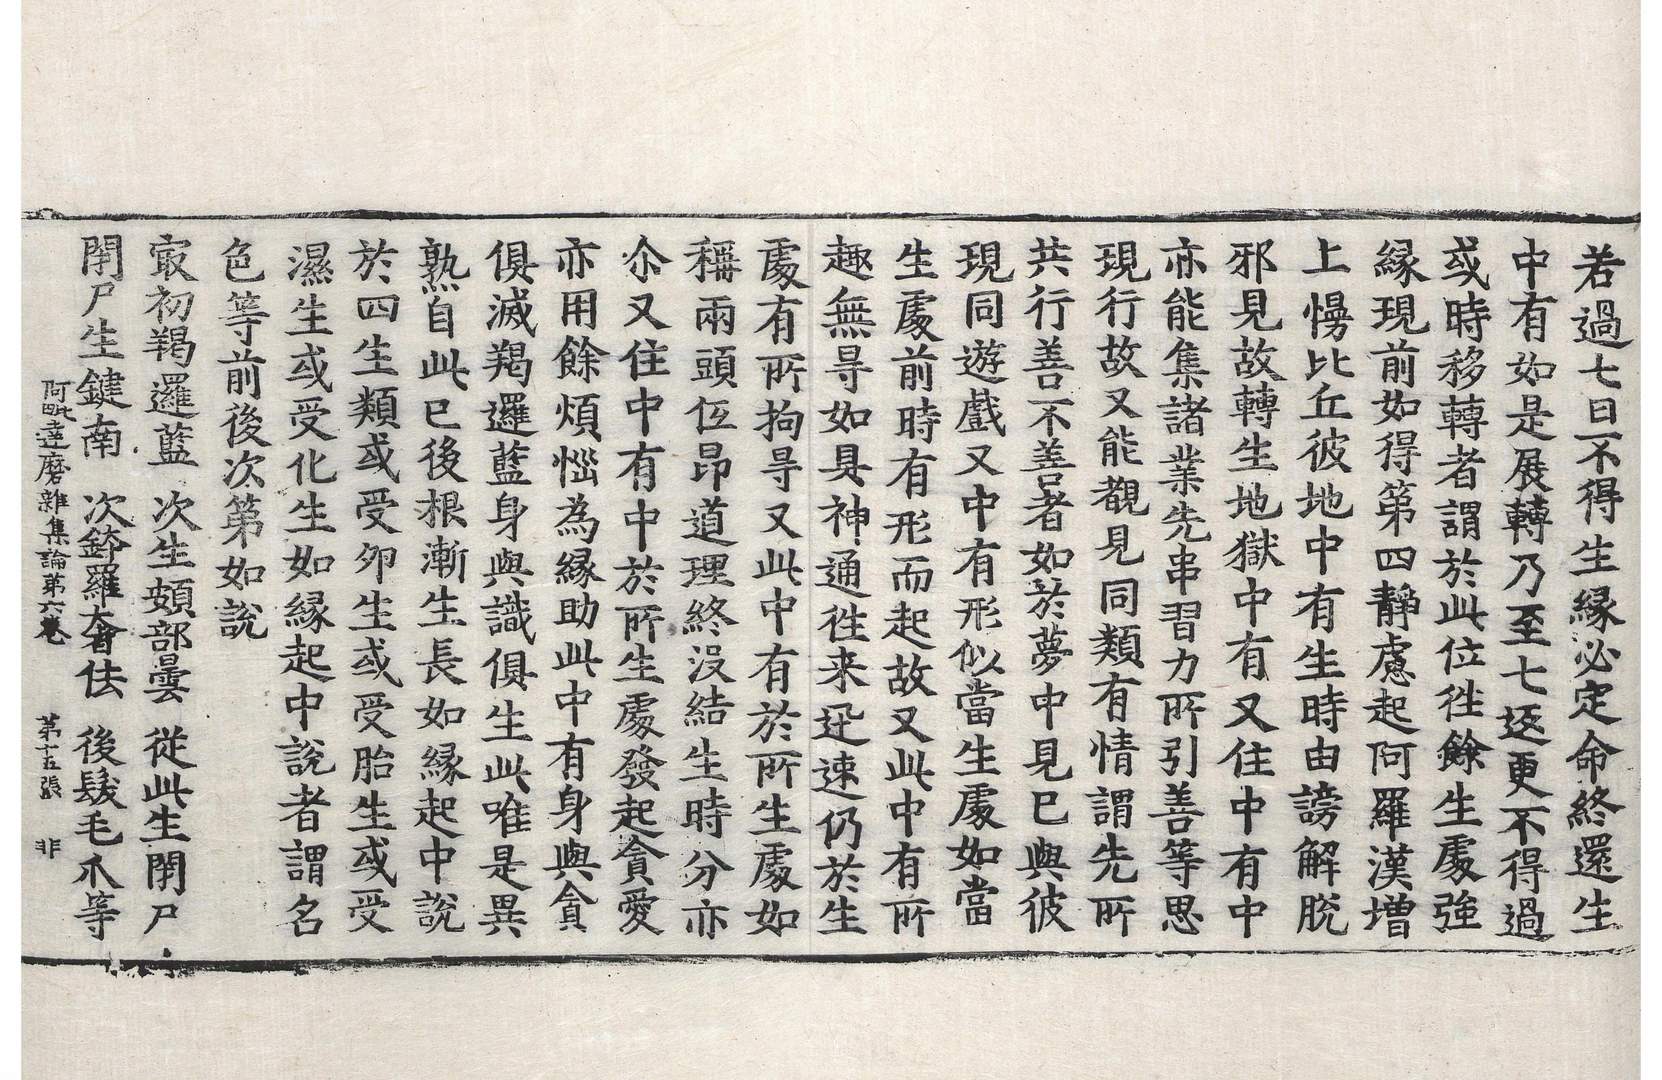 若過七日不得生緣必定命終還生
中有如是展轉乃至七返更不得過
或時移轉者謂於此位徃餘生處強
緣現前如得第四靜慮起阿羅漢增
上慢比丘彼地中有生時由謗解脫
邪見故轉生地獄中有又住中有中
亦能集諸業先串習力所引善等思
現行故又能覩見同類有情謂先所
共行善不善者如於夢中見已與彼
現同遊戲又中有形似當生處如當
生處前時有形而起故又此中有所
趣無㝵如具神通徃来迅速仍於生
處有所拘㝵又此中有於所生處如
稱兩頭伍昂道理終沒結生時分亦
尒又住中有中於所生處發起貪愛
亦用餘煩惱為緣助此中有身與貪
俱滅羯邏藍身與識俱生此唯是異
熟自此已後根漸生長如緣起中說
於四生類或受夘生或受胎生或受
濕生或受化生如緣起中說者謂名
色等前後次第如說
㝡初羯邏藍 次生頞部曇 從此生閉尸
閉尸生鍵南 次鉢羅奢佉 後髮毛爪等
阿毗達磨雜集論第六卷 第十五張 非